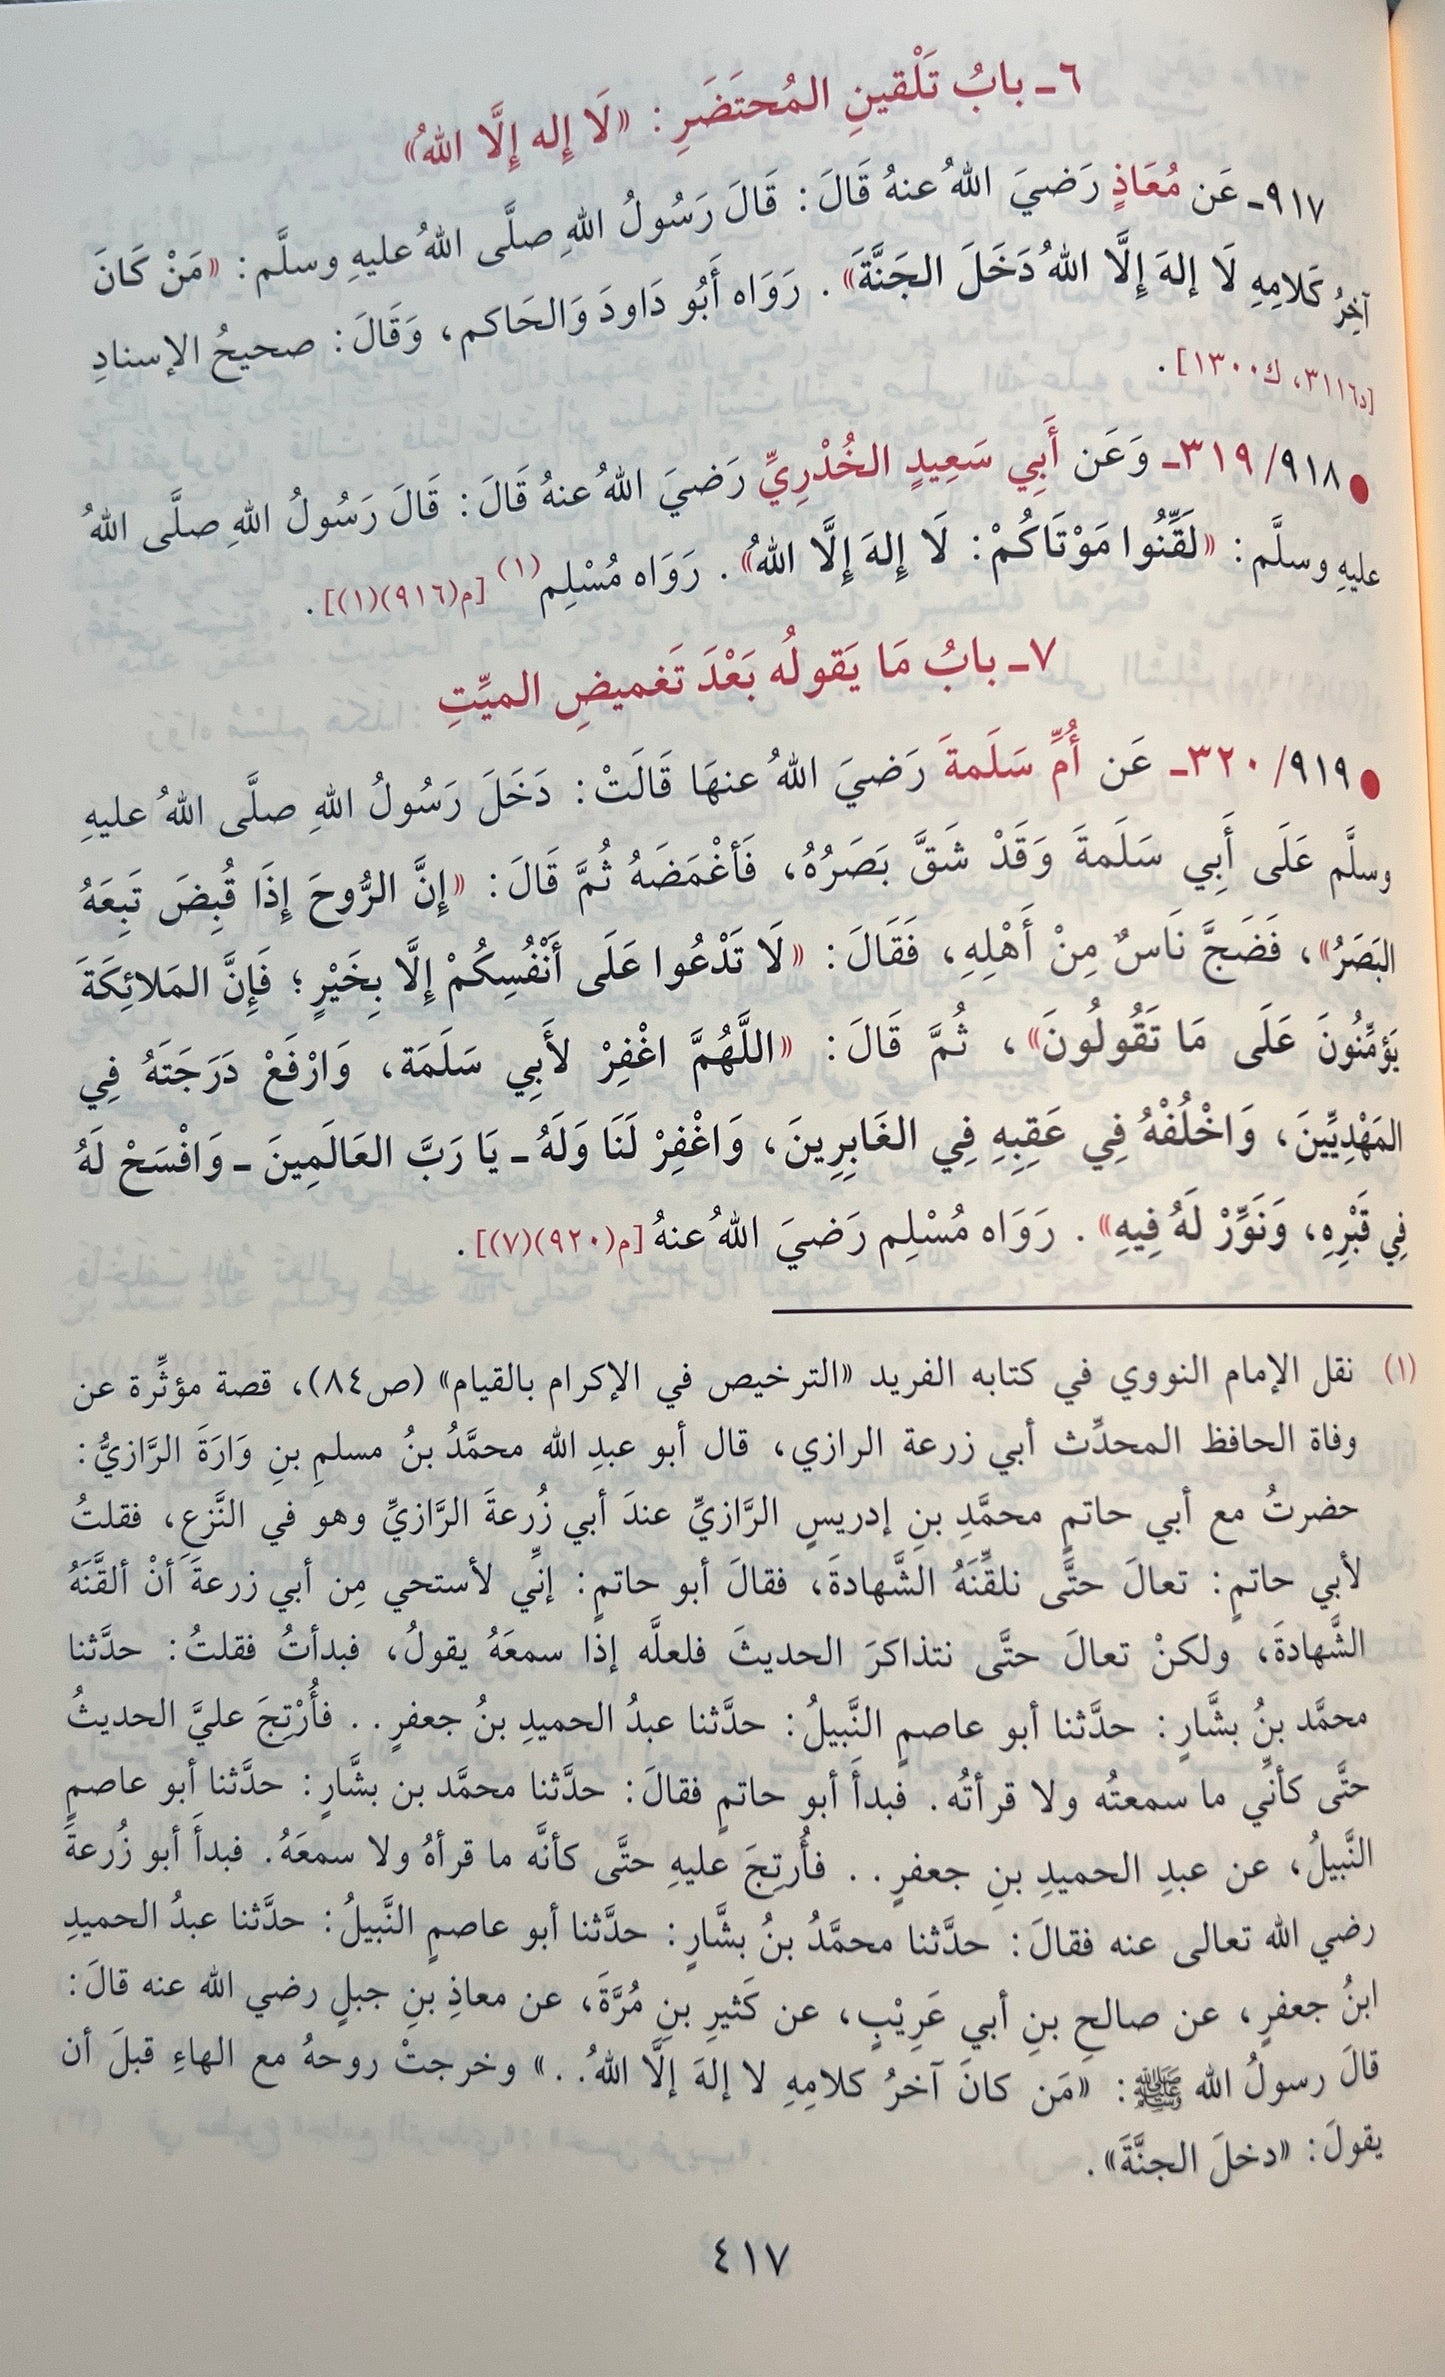 ٦ ـ بابُ تَلْقينِ المُحتَضَرِ: «لَا إِله إِلَّا اللهُ»
٩١٧ـ عَن مُعَاذٍ رَضيَ اللهُ عنهُ قَالَ: قَالَ رَسُولُ اللهِ صلَّى اللهُ عليهِ وسلَّم: «مَنْ كَانَ
آخِرُ كَلامِهِ لَا إلهَ إِلَّا اللهُ دَخَلَ الجَنَّةَ». رَوَاه أَبُو دَاودَ وَالحَاكم، وَقَالَ: صحيحُ الإسنادِ
[د٣١١٦، ك١٣٠٠].
● ٩١٨/ ٣١٩ـ وَعَن أَبِي سَعِيدٍ الخُدْرِيِّ رَضيَ اللهُ عنهُ قَالَ: قَالَ رَسُولُ اللهِ صلَّى اللهُ
عليهِ وسلَّم: «لَقِّنُوا مَوْتَاكُمْ: لَا إِلهَ إِلَّا اللهُ». رَوَاه مُسْلِم(١) [م(٩١٦)(١)].
٧ـ بابُ مَا يَقولُه بَعْدَ تَغميضِ الميِّتِ
● ٩١٩/ ٣٢٠ـ عَن أُمِّ سَلَمةَ رَضيَ اللهُ عنهَا قَالَتْ: دَخَلَ رَسُولُ اللهِ صلَّى اللهُ عليهِ
وسلَّم عَلَى أَبِي سَلَمةَ وَقَدْ شَقَّ بَصَرُهُ، فَأغْمَضَهُ ثُمَّ قَالَ: «إِنَّ الرُّوحَ إِذَا قُبِضَ تَبِعَهُ
البَصَرُ»، فَضَجَّ نَاسٌ مِنْ أَهْلِهِ، فَقَالَ: «لَا تَدْعُوا عَلَى أَنْفُسِكُمْ إِلَّا بِخَيْرٍ؛ فَإِنَّ المَلائِكَةَ
يَؤمِّنُونَ عَلَى مَا تَقُولُونَ»، ثُمَّ قَالَ: «اللَّهُمَّ اغْفِرْ لأَبِي سَلَمَة، وَارْفَعْ دَرَجَتَهُ فِي
المَهْدِيِّينَ، وَاخْلُفْهُ فِي عَقِبِهِ فِي الغَابِرِينَ، وَاغْفِرْ لَنَا وَلَهُ ـ يَا رَبَّ العَالَمِينَ ـ وَافْسَحْ لَهُ
فِي قَبْرِهِ، وَنَوِّرْ لَهُ فِيهِ». رَوَاه مُسْلِم رَضيَ اللهُ عنهُ [م(٩٢٠)(٧)].
(١) نقل الإمام النووي في كتابه الفريد «الترخيص في الإكرام بالقيام» (ص٨٤)، قصة مؤثِّرة عن
وفاة الحافظ المحدِّث أبي زرعة الرازي، قال أبو عبدِ الله محمَّدُ بنُ مسلمِ بنِ وَارَةَ الرَّازيُّ:
حضرتُ مع أبي حاتمٍ محمَّدِ بنِ إدريسٍ الرَّازيِّ عندَ أبي زُرعةَ الرَّازيِّ وهو في النَّزعِ، فقلتُ
لأبي حاتمٍ: تعالَ حتَّى نلقِّنَهُ الشَّهادةَ، فقالَ أبو حاتمٍ: إنِّي لأستحي مِن أبي زرعةَ أنْ ألقَّنَهُ
الشَّهادةَ، ولكنْ تعالَ حتَّى نتذاكرَ الحديثَ فلعلَّه إذا سمعَهُ يقولُ، فبدأتُ فقلتُ: حدَّثنا
محمَّد بنُ بشَّارٍ: حدَّثنا أبو عاصمٍ النَّبيلُ: حدَّثنا عبدُ الحميدِ بنُ جعفرٍ.. فأُرْتِجَ عليَّ الحديثُ
حتَّى كأنِّي ما سمعتُه ولا قرأتُه. فبدأَ أبو حاتمٍ فقالَ: حدَّثنا محمَّد بن بشَّارٍ: حدَّثنا أبو عاصمٍ
النَّبيلُ، عن عبدِ الحميدِ بنِ جعفرٍ.. فأُرتِجَ عليهِ حتَّى كأنَّه ما قرأهُ ولا سمعَهُ. فبدأَ أبو زُرعةَ
رضي الله تعالى عنه فقالَ: حدَّثنا محمَّدُ بنُ بشَّارٍ: حدَّثنا أبو عاصمٍ النَّبيلُ: حدَّثنا عبدُ الحميدِ
ابنُ جعفرٍ، عن صالحِ بنِ أبي عَرِيْبٍ، عن كَثيرِ بنِ مُرَّةَ، عن معاذِ بنِ جبلٍ رضي الله عنه قالَ:
قالَ رسولُ الله ﷺ: «مَن كانَ آخرُ كلامِهِ لا إلهَ إلَّا اللهُ..» وخرجتْ روحهُ مع الهاءِ قبلَ أن
يقولَ: «دخلَ الجنَّةَ».
٤١٧